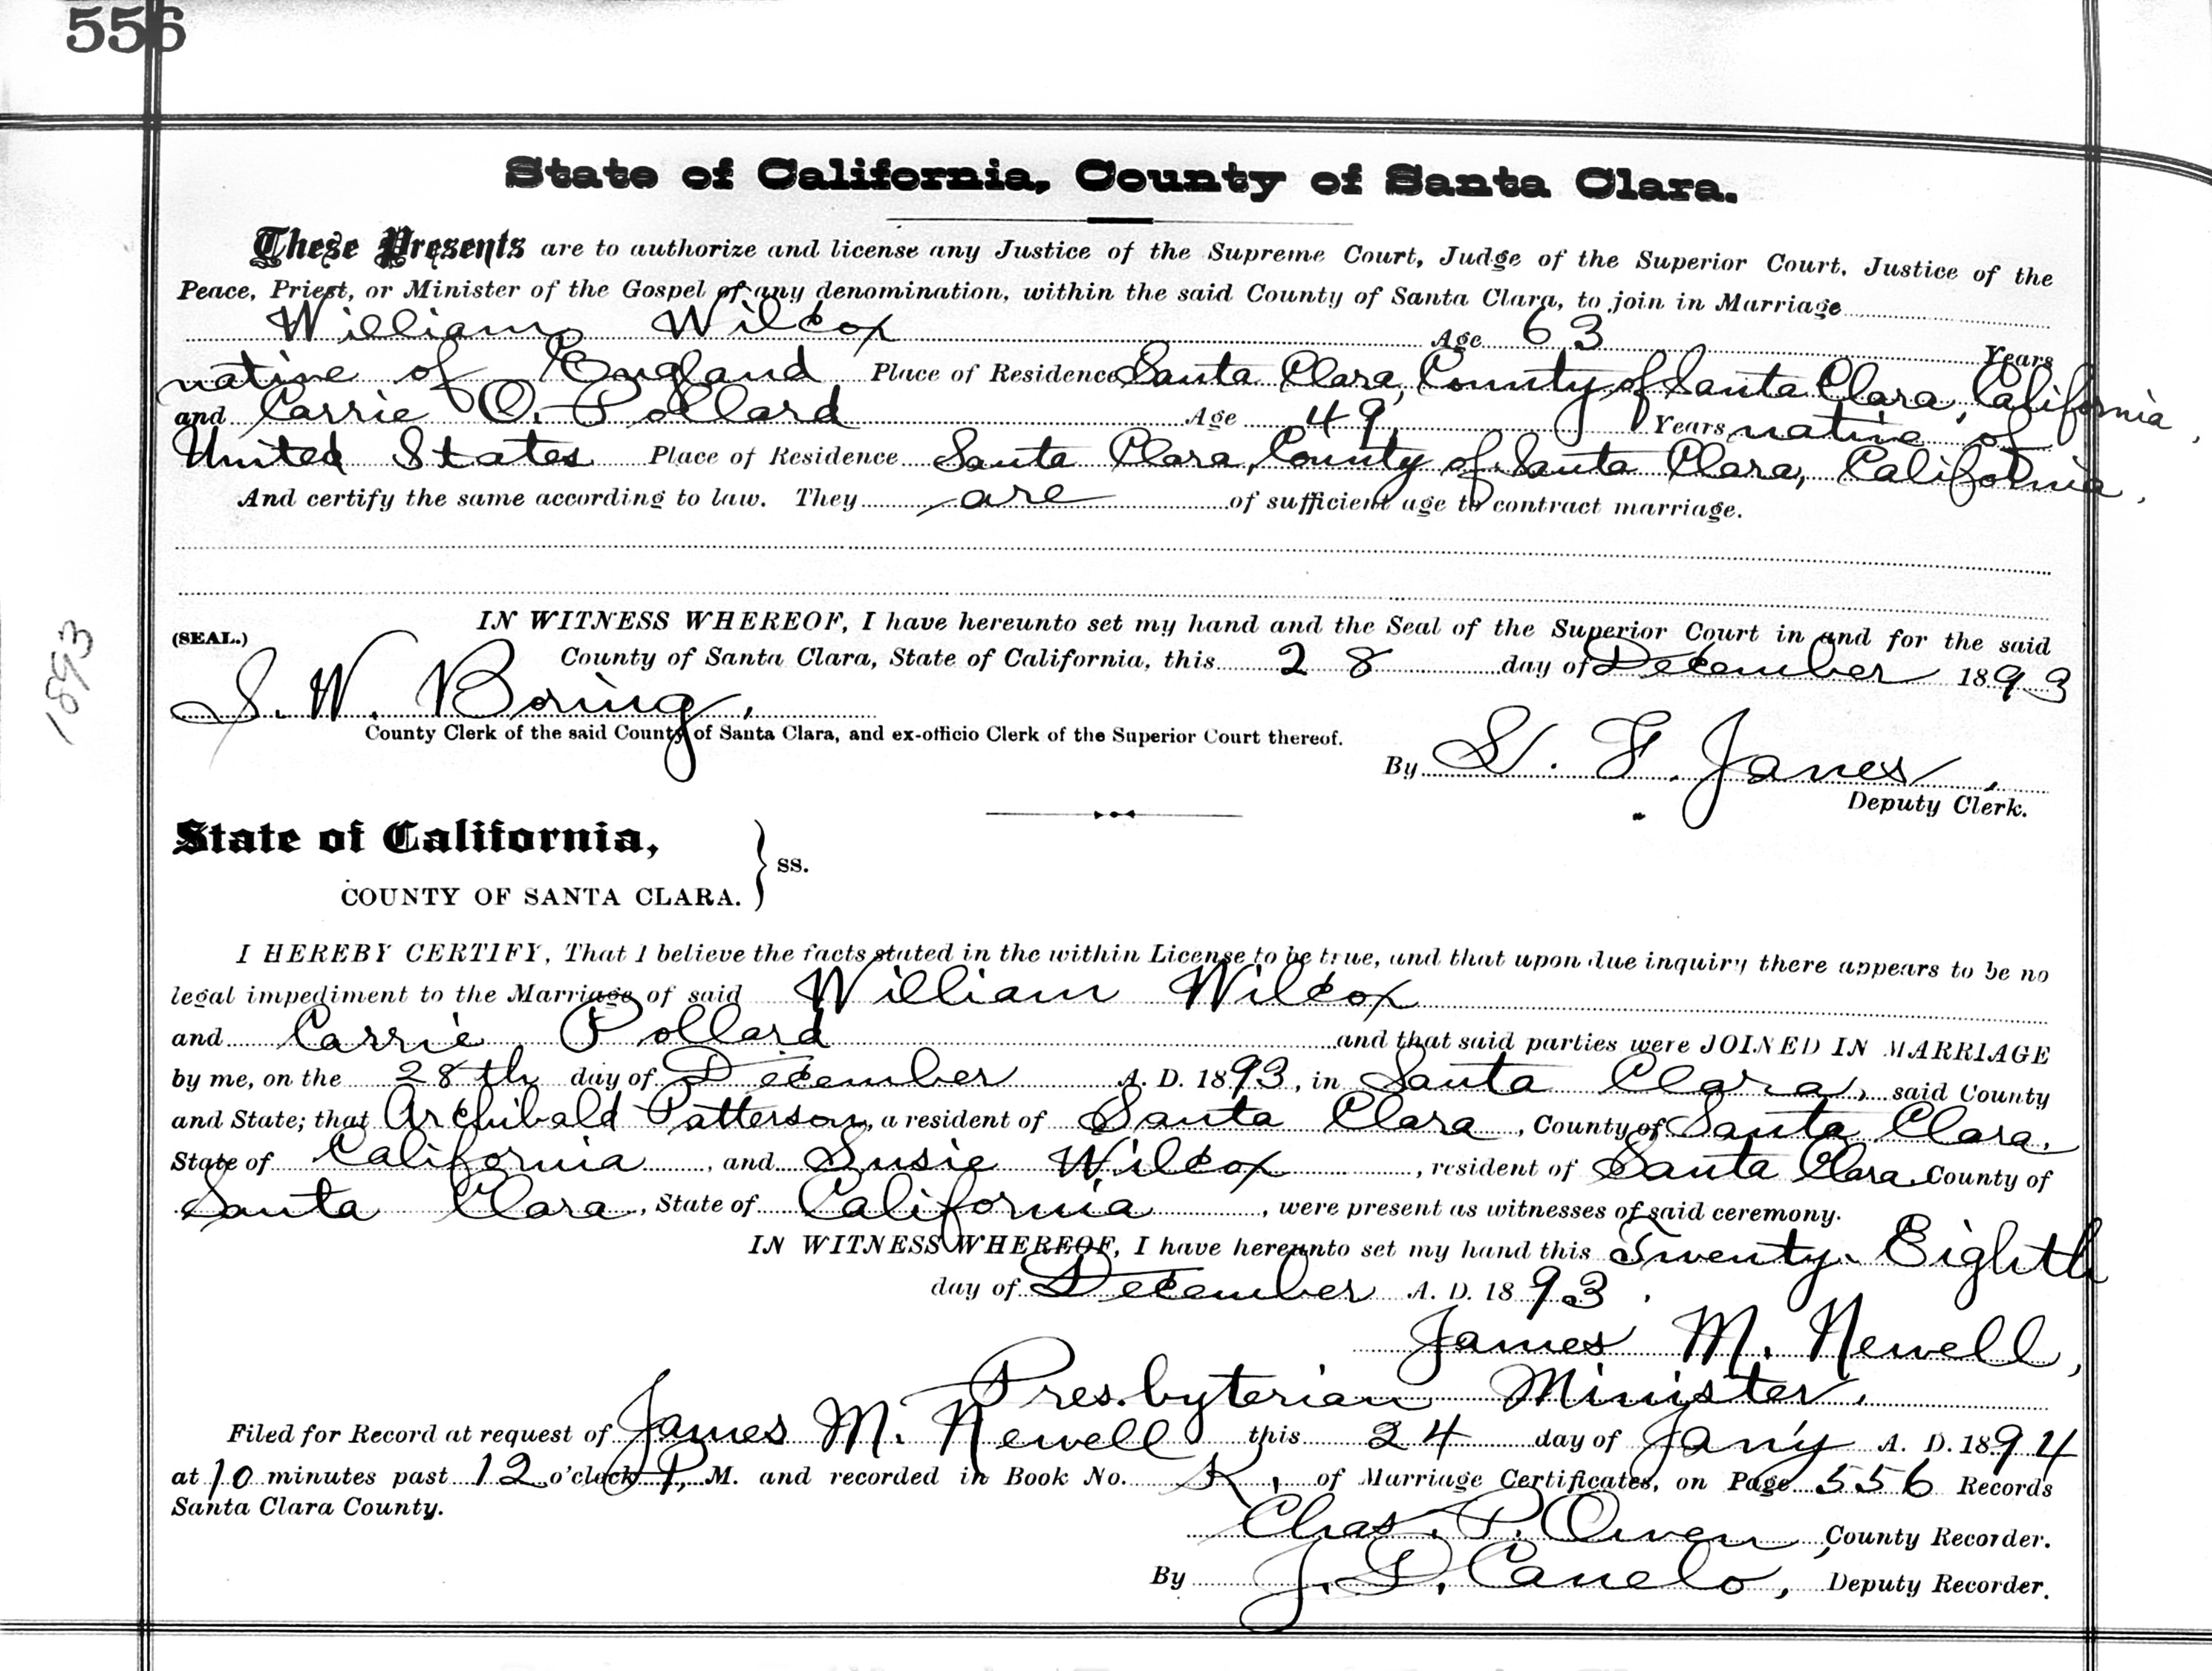 556
State of California, County of Santa Clara.
These Presents are to authorize and license any Justice of the Supreme Court, Judge of the Superior Court, Justice of the
Peace, Priest, or Minister of the Gospel of any denomination, within the said County of Santa Clara, to join in Marriage
William Wilcox Age 63 Years
native of England Place of Residence Santa Clara, County of Santa Clara, California,
and Carrie O. Pollard Age 49, Years, native of
United States Place of Residence Santa Clara, County of Santa Clara, California.
And certify the same according to law. They are of sufficient age to contract marriage.
IN WITNESS WHEREOF, I have hereunto set my hand and the Seal of the Superior Court in and for the said
(SEAL.)
County of Santa Clara, State of California, this 28 day of December 1893
S. W. Boring,
County Clerk of the said County of Santa Clara, and ex-officio Clerk of the Superior Court thereof.
By F. Janes,
Deputy Clerk.
1893
State of California,
COUNTY OF SANTA CLARA. } ss.
I HEREBY CERTIFY, That I believe the facts stated in the within License to be true, and that upon due inquiry there appears to be no
legal impediment to the Marriage of said William Wilcox
and Carrie Pollard and that said parties were JOINED IN MARRIAGE
by me, on the 28th day of December A. D. 1893, in Santa Clara, said County
and State; that Archibald Patterson, a resident of Santa Clara, County of Santa Clara,
State of California, and Susie Wilcox, resident of Santa Clara County of
Santa Clara, State of California, were present as witnesses of said ceremony.
IN WITNESS WHEREOF, I have hereunto set my hand this Twenty-Eighth
day of December A. D. 1893.
James M. Newell,
Presbyterian Minister.
Filed for Record at request of James M. Newell this 24 day of Jan'y A. D. 1894
at 10 minutes past 12 o'clock P. M. and recorded in Book No. K, of Marriage Certificates, on Page 556 Records
Santa Clara County.
Chas. P. Owen, County Recorder.
By J. D. Canelo, Deputy Recorder.